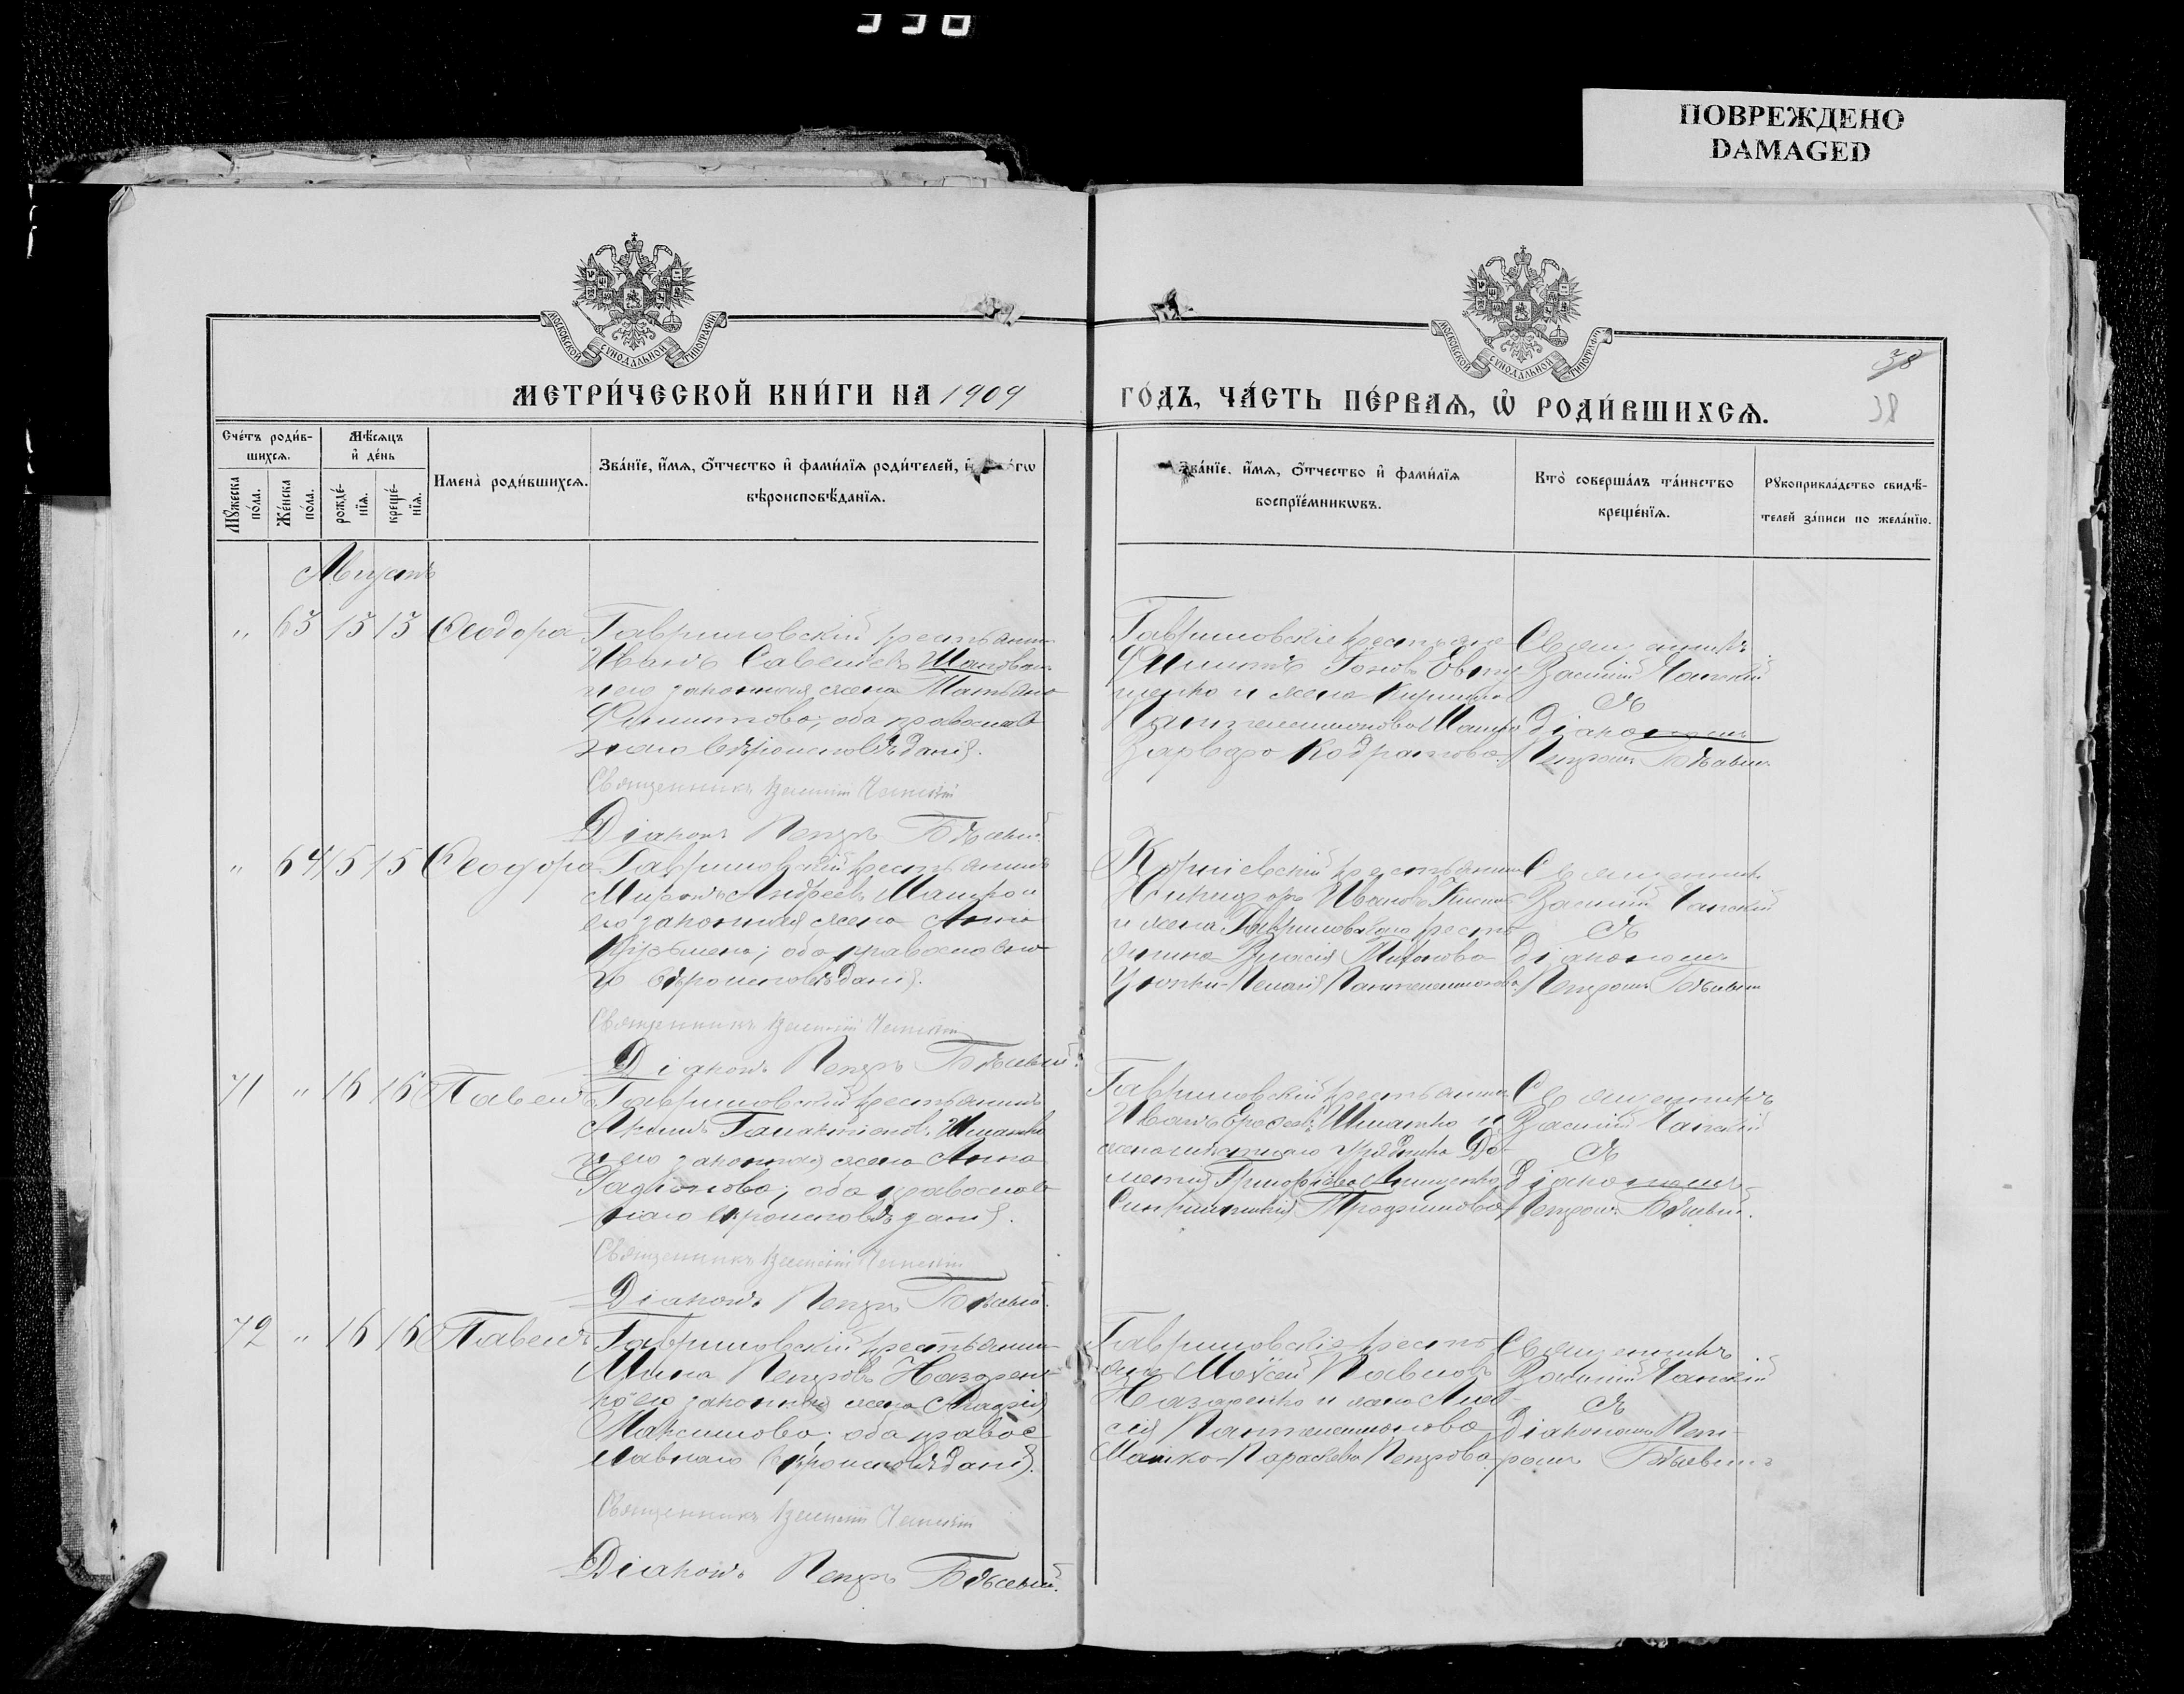 338
ПОВРЕЖДЕНО
DAMAGED
МОСКОВСКОЙ СѴНОДАЛЬНОЙ ТИПОГРАФІИ
МОСКОВСКОЙ СѴНОДАЛЬНОЙ ТИПОГРАФІИ
38
МЕТРИ́ЧЕСКОЙ КНИ́ГИ НА 1909
ГО́ДЪ, ЧА́СТЬ ПЕ́РВАѦ, Ѡ҆ РОДИ́ВШИХСѦ.
38
Сче́тъ роди́в-
шихсѧ.
Мѣ́сѧцъ
и҆ де́нь
Мꙋ́жеска
по́ла.
Же́нска
по́ла.
рожде́-
нїѧ.
креще́-
нїѧ.
Имена̀ роди́вшихсѧ.
Зва́нїе, и҆́мѧ, ѻ҆́тчество и҆ фами́лїѧ роди́телей, и҆
вѣроисповѣ́данїѧ.
Зва́нїе, и҆́мѧ, ѻ҆́тчество и҆ фами́лїѧ
воспрїе́мникѡвъ.
Кто̀ соверша́лъ та́инство
креще́нїѧ.
Рꙋкоприкла́дство свидѣ́-
телей за́писи по жела́нїю.
Августъ
" 63 15 15 Ѳеодора
Гавриловскій крестьянинъ
Иванъ Савельевъ Шаповал
и его законная жена Татьяна
Филиппова; оба православ
наго вѣроисповѣданія.
Священникъ Василій Чапскій
Діаконъ Петръ Бѣлый.
Гавриловскіе крестьяне
Филиппъ Евту-
шенко и жена
Пантелеимонова
Кодратова.
Священникъ
Василій Чапскій
съ
діакономъ
Петромъ Бѣлымъ
" 64 15 15 Ѳеодора
Гавриловскій крестьянинъ
Миронъ Андреевъ Машко и
его законная жена Анна
Кузьмена; оба православна
го вѣроисповѣданія.
Священникъ Василій Чапскій
Діаконъ Петръ Бѣлый.
крестьянинъ
Никифоръ Ивановъ
и жена Гавриловскаго кресть
янина
Пелагія Пантелеимонова.
Священникъ
Василій Чапскій
съ
діакономъ
Петромъ Бѣлымъ
71 " 16 16 Павелъ
Гавриловскій крестьянинъ
Акимъ Галактіоновъ Шматко
и его законная жена Анна
Радіонова; оба православ
наго вѣроисповѣданія.
Священникъ Василій Чапскій
Діаконъ Петръ Бѣлый.
Гавриловскій крестьянинъ
Иванъ Шматко и
жена урядника
Трофимова
Священникъ
Василій Чапскій
съ
діакономъ
Петромъ Бѣлый.
72 " 16 16 Павелъ
Гавриловскій крестьянинъ
Мина Петровъ Назарен-
ко его законная жена
Максимова; оба правос
лавнаго вѣроисповѣданія.
Священникъ Василій Чапскій
Діаконъ Петръ Бѣлый.
Гавриловскіе кресть
яне Моѵсей Павловъ
Назаренко и жена
Пантелеимонова
Машко Параскева Петрова
Священникъ
Василій Чапскій
съ
діакономъ Пет-
ромъ Бѣлымъ